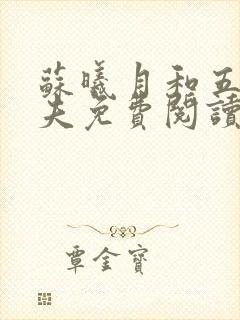 蘇曦月和五
夫免費閱讀
覃金寶